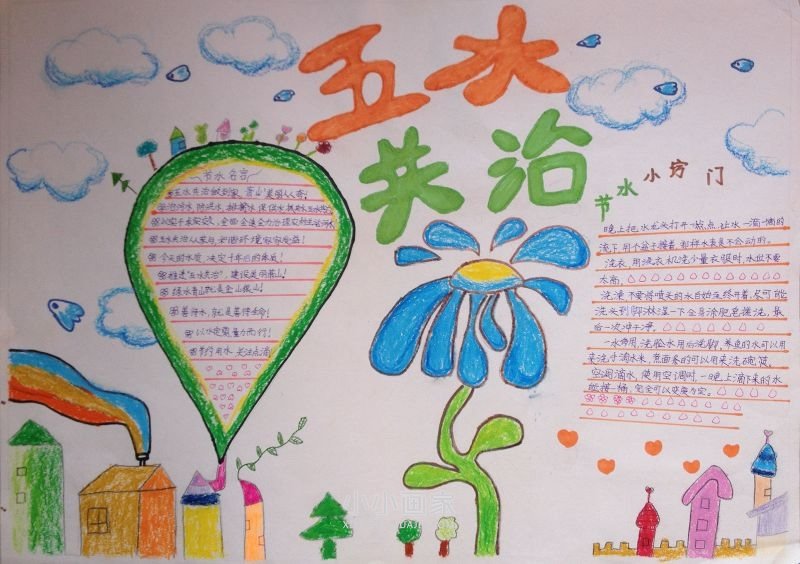 五水
共治
节水名言
五水共治做到家，萧山美丽人人夸！
治污水 防洪水 排涝水 保供水 抓节水
五水共治人人参与 美丽环境家家受益！
今天的水质 决定十年后的体质！
推进"五水共治"，建设美丽萧山！
绿水青山就是金山银山！
善待水，就是善待生命！
以水定需量力而行！
节约用水 关注点滴
节水小窍门
晚上把水龙头打开一点点，让水一滴一滴的
流下，用个盆子接着，别样水表是不会动的。
洗衣，用洗衣机洗少量衣服时，水位不要
太高，
洗澡，不要将喷头的水自始至终开着，尽可能
洗头到脚淋湿一下，全身涂肥皂搓洗，最
后一次冲干净。
一水两用，洗脸水用后洗脚，养鱼的水可以用
来浇，煮面条的可以用来洗碗筷，
空调滴水，使用空调时，一晚上滴下来的水
能接一桶，完全可以变废为宝。
小小画家